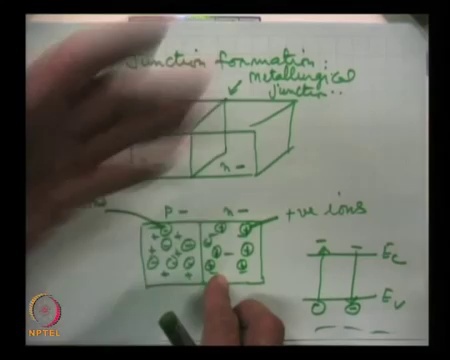 Junction formation:
metallurgical
junction..
n-
p- n-
+ve ions
Ec
Ev
NPTEL